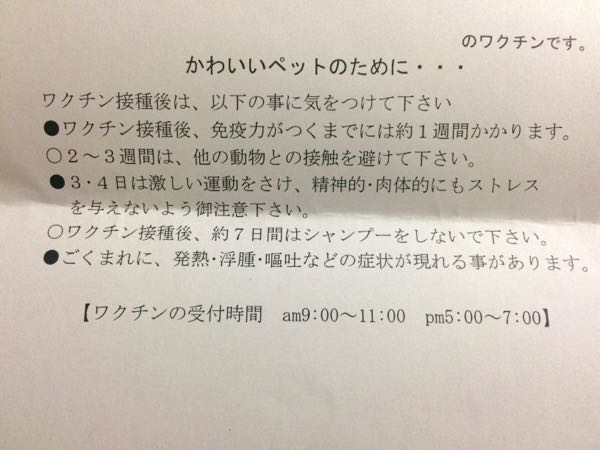 のワクチンです。
かわいいペットのために・・・
ワクチン接種後は、以下の事に気をつけて下さい
●ワクチン接種後、免疫力がつくまでには約１週間かかります。
○２～３週間は、他の動物との接触を避けて下さい。
●３・４日は激しい運動をさけ、精神的・肉体的にもストレス
を与えないよう御注意下さい。
○ワクチン接種後、約７日間はシャンプーをしないで下さい。
●ごくまれに、発熱・浮腫・嘔吐などの症状が現れる事があります。
【ワクチンの受付時間　am9:00～11:00　pm5:00～7:00】